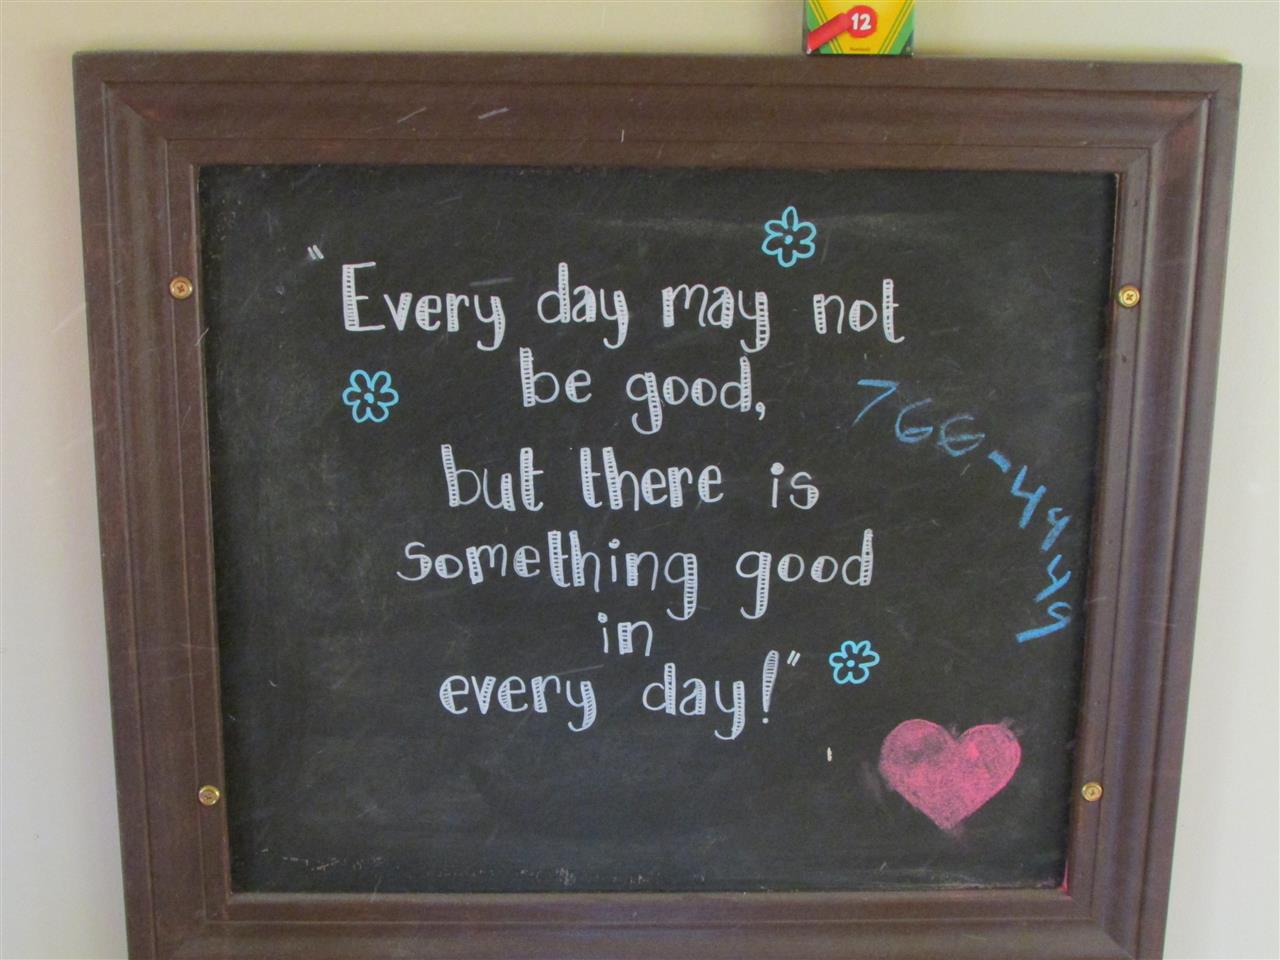 12
"Every day may not
be good,
but there is
something good
in
every day!"
766-4445